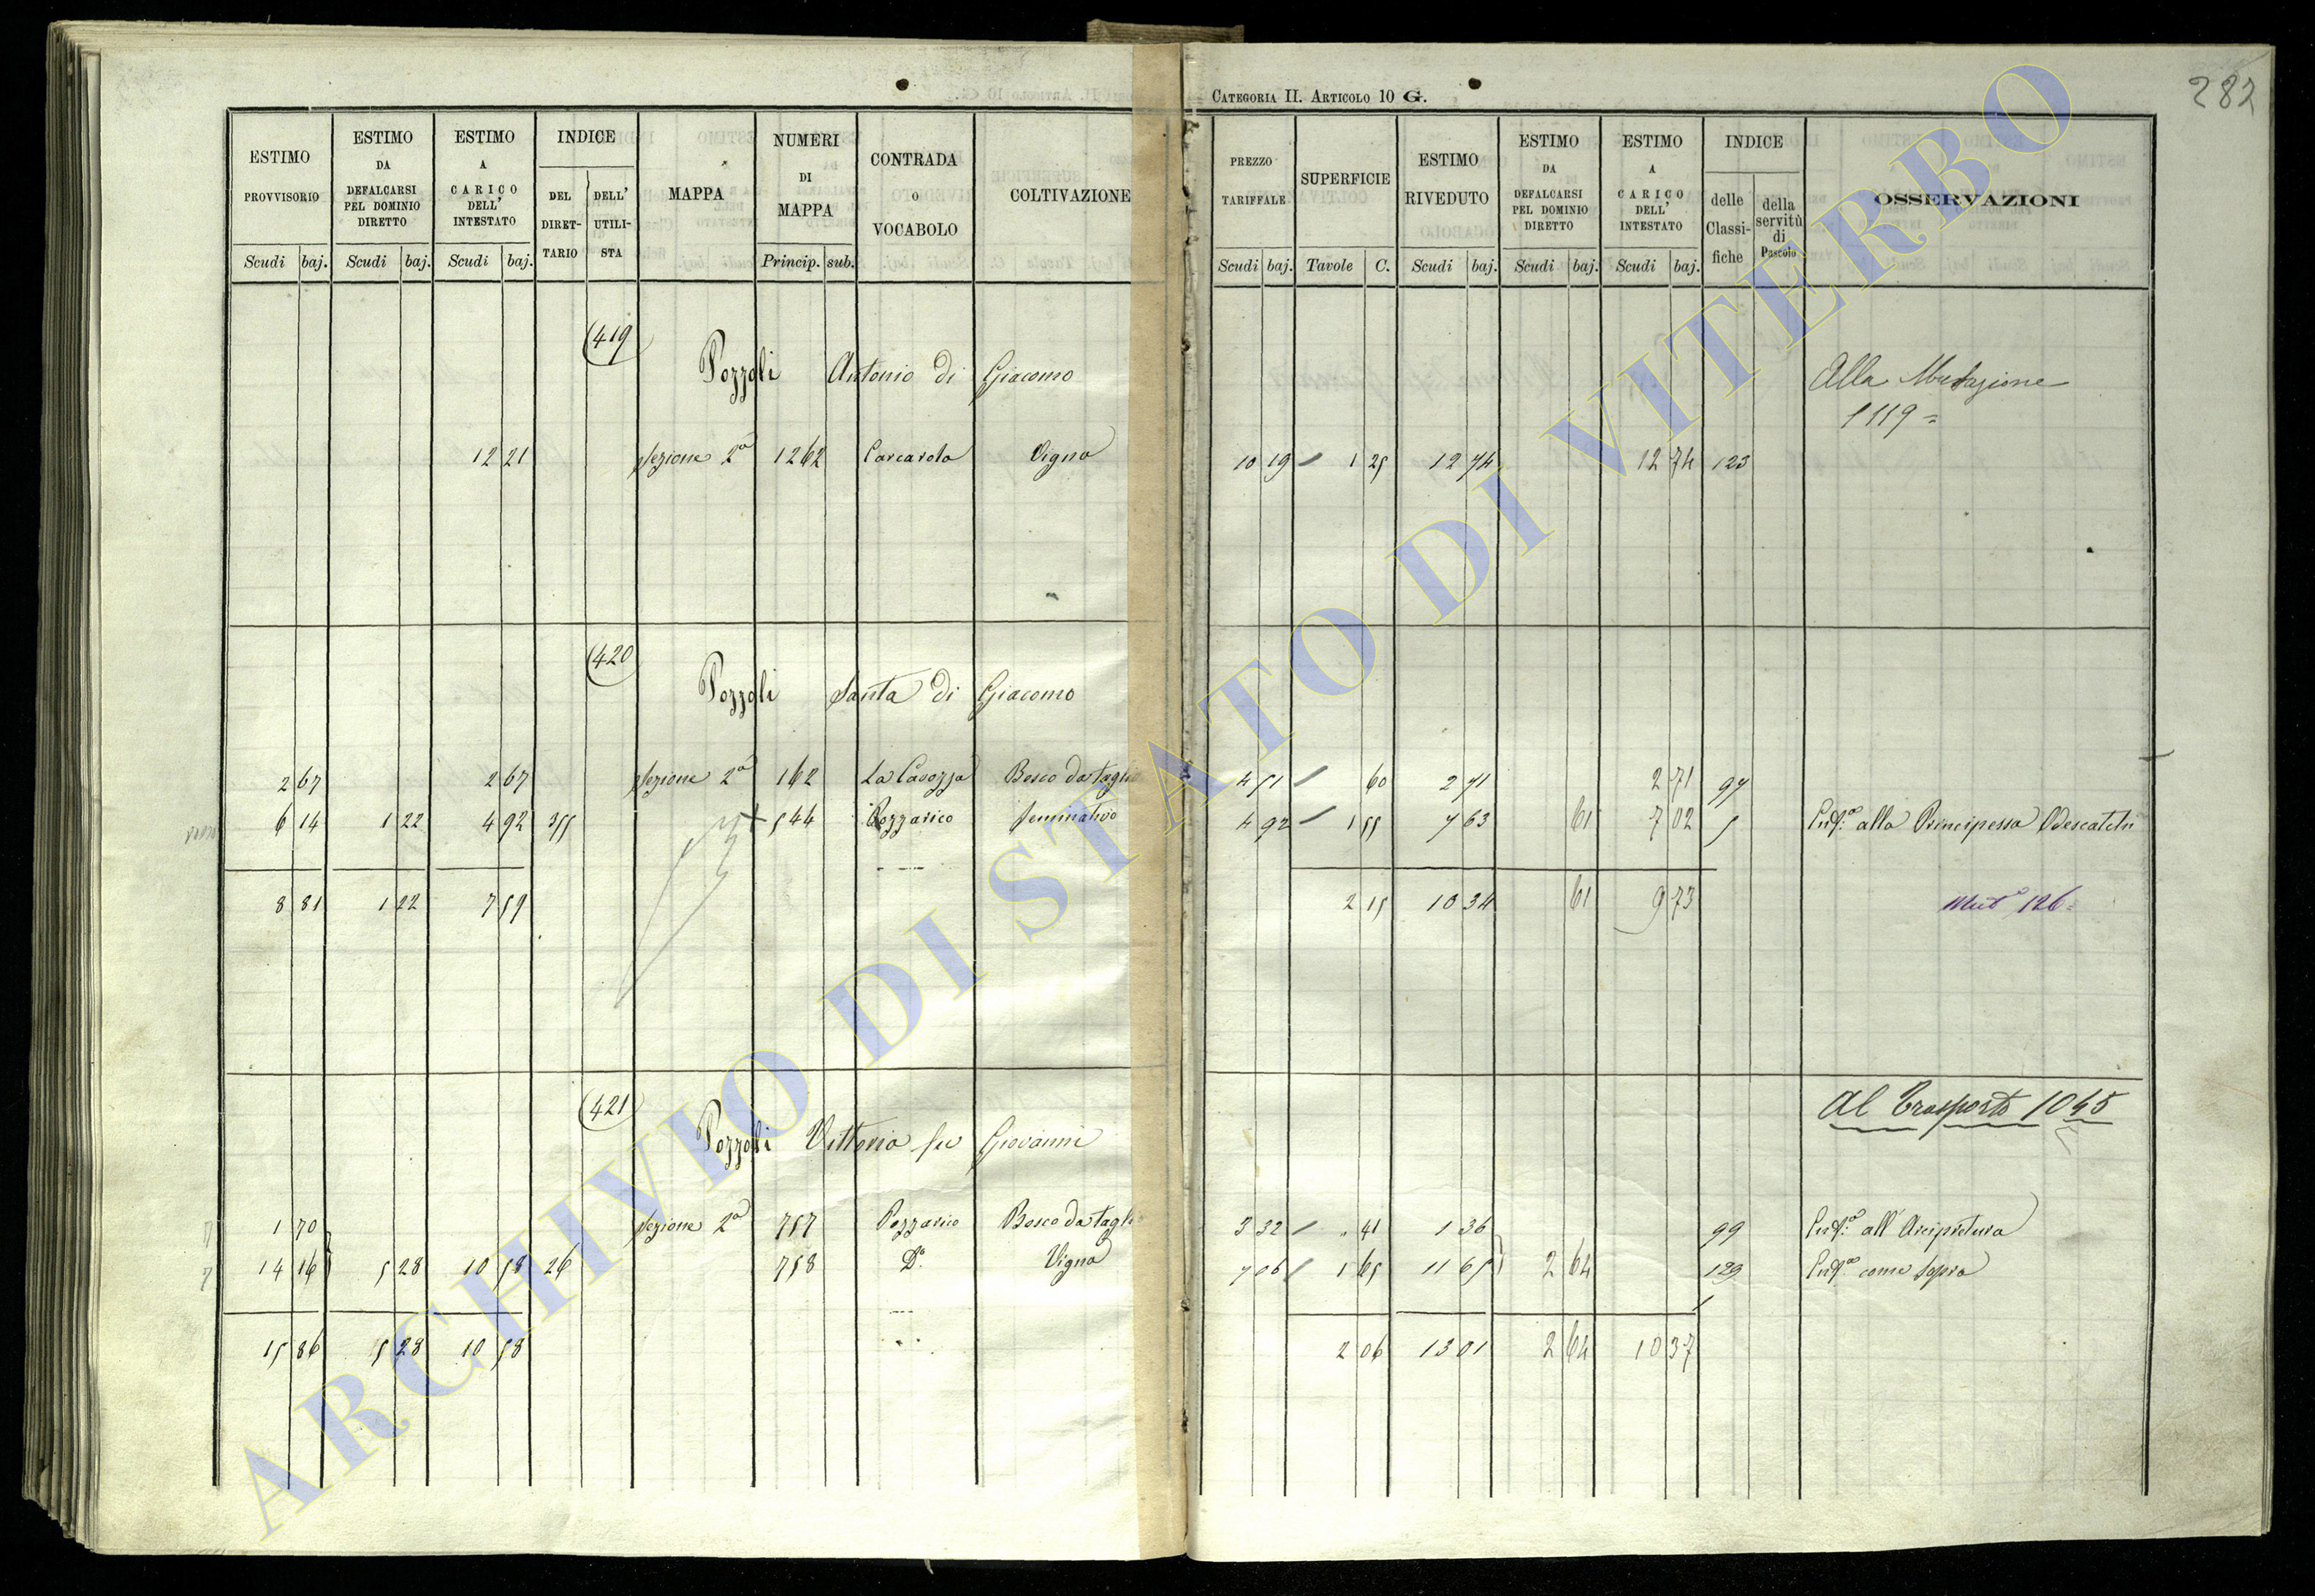 CATEGORIA II. ARTICOLO 10 G.
282
ESTIMO PROVVISORIO Scudi baj.
ESTIMO DA DEFALCARSI PEL DOMINIO DIRETTO Scudi baj.
ESTIMO A CARICO DELL' INTESTATO Scudi baj.
INDICE DEL DIRETTARIO DELL' UTILISTA
MAPPA
NUMERI DI MAPPA Princip. sub.
CONTRADA o VOCABOLO
COLTIVAZIONE
PREZZO TARIFFALE Scudi baj.
SUPERFICIE Tavole C.
ESTIMO RIVEDUTO Scudi baj.
ESTIMO DA DEFALCARSI PEL DOMINIO DIRETTO Scudi baj.
ESTIMO A CARICO DELL' INTESTATO Scudi baj.
INDICE delle Classifiche della servitù di Pascolo
OSSERVAZIONI
419
Pozzoli Antonio di Giacomo
Alla Mutazione
1119 =
12 21 Sezione 2ª 1262 Carcarola Vigna 10 19 1 25 12 74 12 74 123
420
Pozzoli Santa di Giacomo
2 67 2 67 Sezione 2ª 162 La Cavozza Bosco da taglio 4 51 60 2 71 2 71 97
6 14 1 22 4 92 355 544 Pozzarico Seminativo 4 92 1 55 7 63 61 7 02 5 alla Principessa Odescalchi
8 81 1 22 7 59 2 15 10 34 61 9 73 Mutª 126 =
421
Al Trasporto 1045
Pozzoli Vittoria fu Giovanni
1 70 Sezione 2ª 757 Pozzarico Bosco da taglio 3 32 " 41 1 36 99 all' Arcipretura
14 16 5 28 10 58 26 758 Dº Vigna 7 06 1 65 11 65 2 64 129 come sopra
15 86 5 28 10 58 2 06 13 01 2 64 10 37
ARCHIVIO DI STATO DI VITERBO